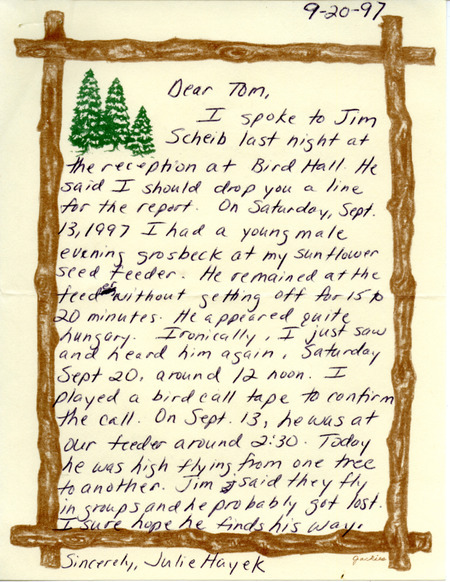 9-20-97
Dear Tom,
I spoke to Jim
Scheib last night at
the reception at Bird Hall. He
said I should drop you a line
for the report. On Saturday, Sept.
13, 1997 I had a young male
evening grosbeck at my sunflower
seed feeder. He remained at the
feeder without getting off for 15 to
20 minutes. He appeared quite
hungary. Ironically, I just saw
and heard him again, Saturday
Sept 20, around 12 noon. I
played a bird call tape to confirm
the call. On Sept. 13, he was at
our feeder around 2:30. Today
he was high flying from one tree
to another. Jim said they fly
in groups and he probably got lost.
I sure hope he finds his way.
Sincerely, Julie Hayek